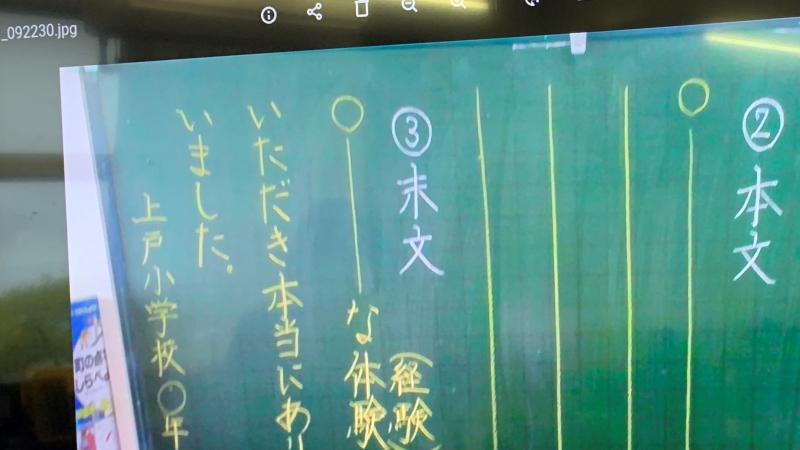 _092230.jpg
②本文
○
③末文
(経験
○な体験
いただき本当にあり
いました。
上戸小学校○年
町の
しらべ